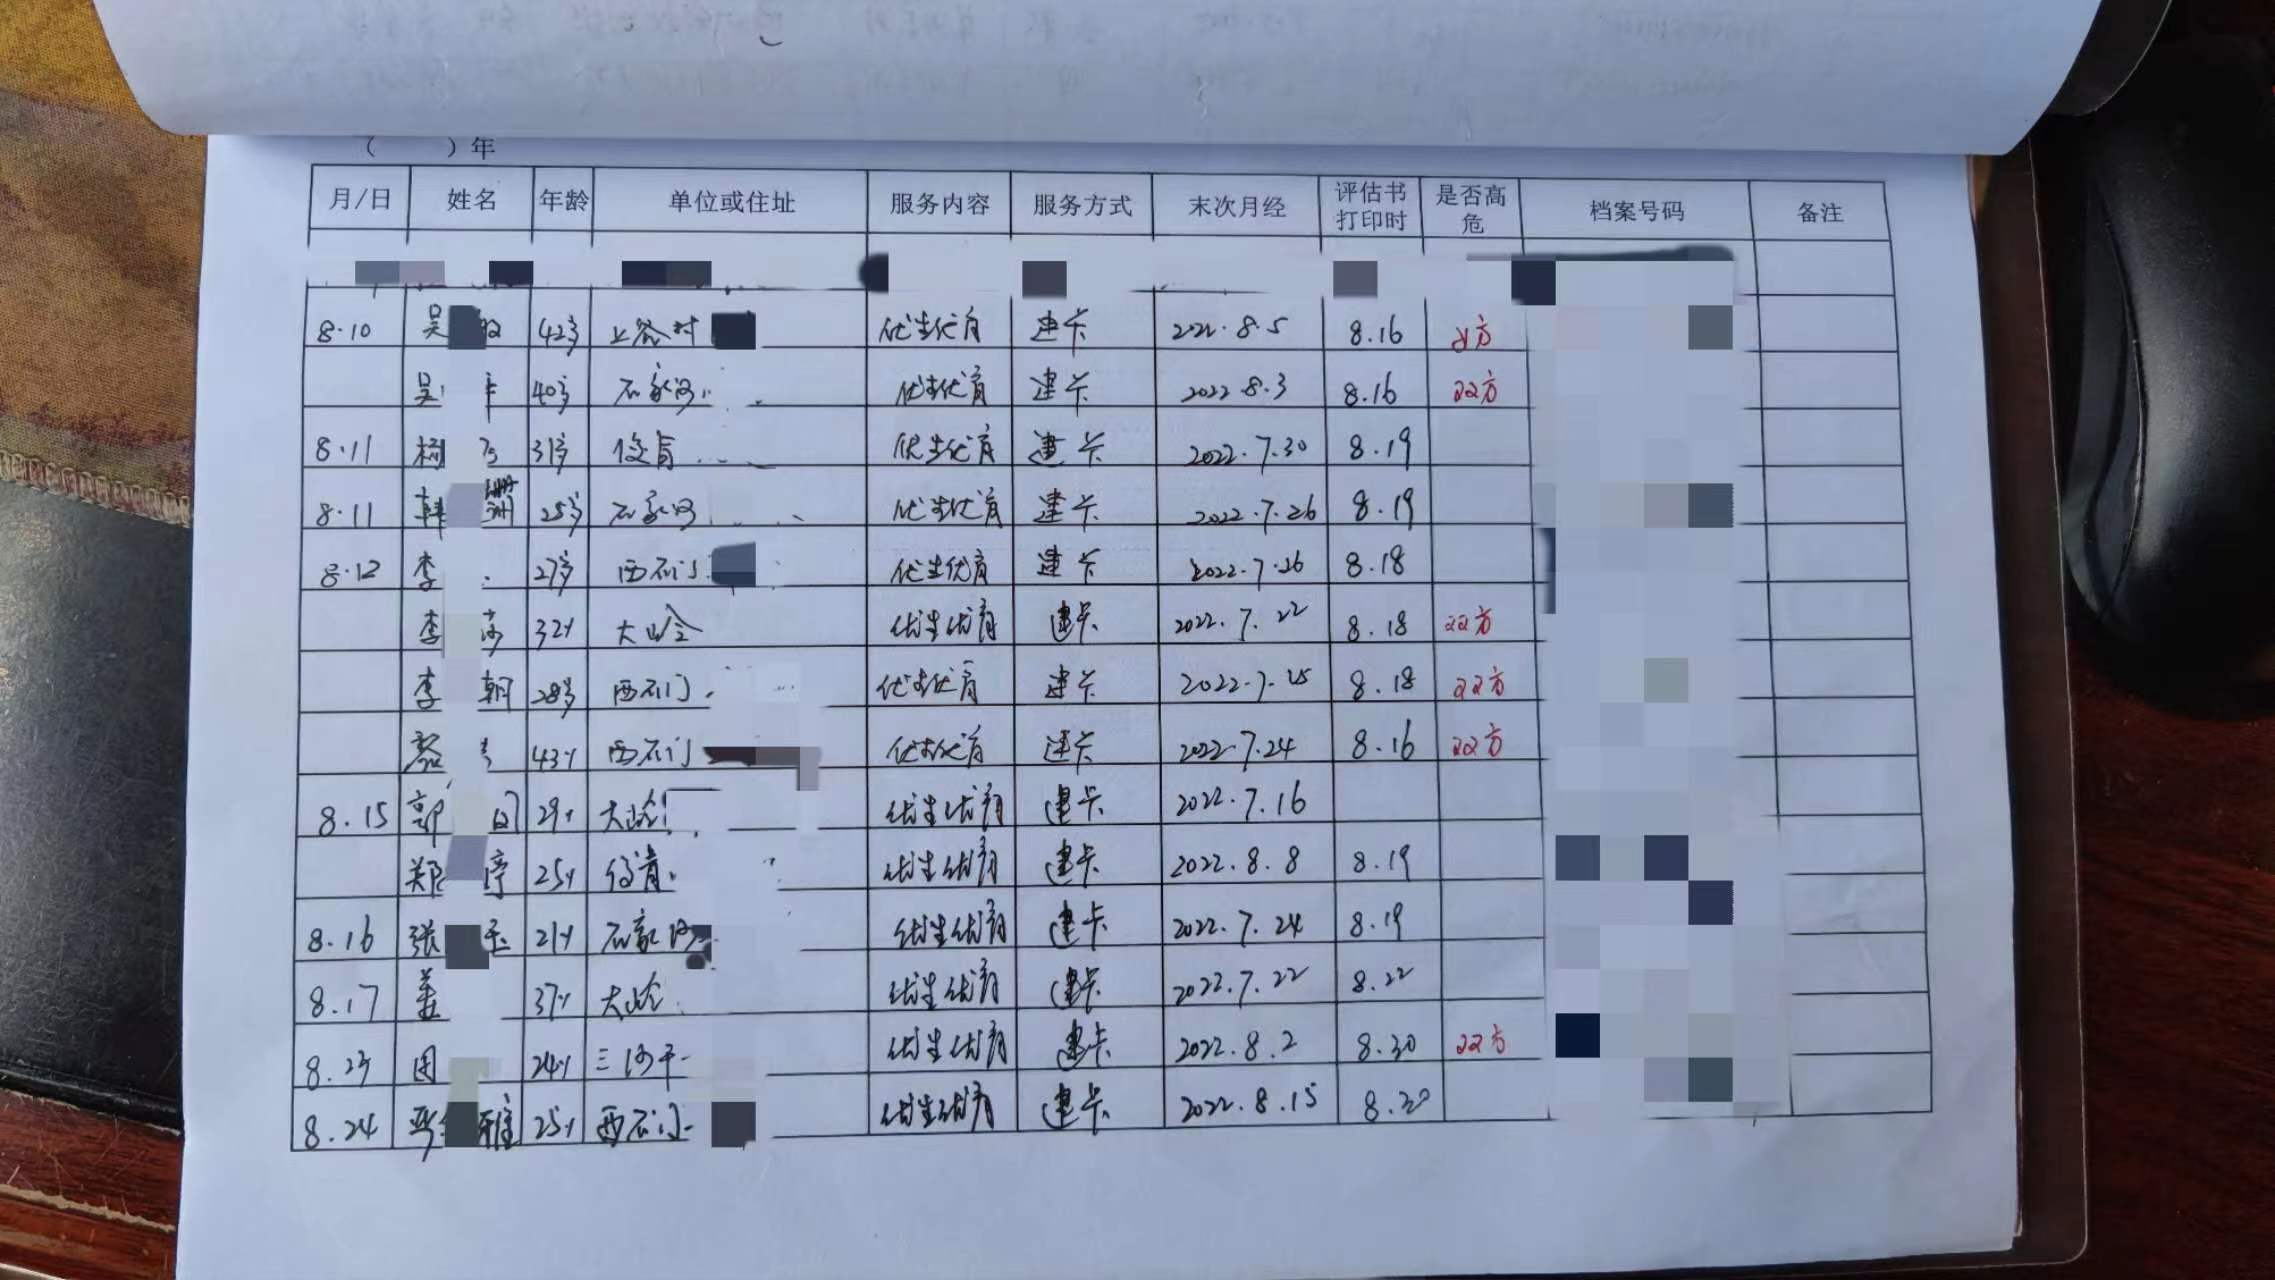 ( ) 年
月/日 姓名 年龄 单位或住址 服务内容 服务方式 末次月经 评估书打印时 是否高危 档案号码 备注
8.10 吴 42岁 上容村 优生优育 建卡 2022.8.5 8.16 女方
吴 40岁 石家沟 优生优育 建卡 2022.8.3 8.16 双方
8.11 柯 31岁 优生优育 建卡 2022.7.30 8.19
8.11 韩 25岁 石家沟 优生优育 建卡 2022.7.26 8.19
8.12 李 27岁 西石门 优生优育 建卡 2022.7.26 8.18
李 32岁 大岭 优生优育 建卡 2022.7.22 8.18 双方
李 朝 28岁 西石门 优生优育 建卡 2022.7.25 8.18 双方
43岁 西石门 优生优育 建卡 2022.7.24 8.16 双方
8.15 郭 29岁 大岭 优生优育 建卡 2022.7.16
郑 婷 25岁 优生优育 建卡 2022.8.8 8.19
8.16 张 玉 21岁 石家沟 优生优育 建卡 2022.7.24 8.19
8.17 姜 37岁 大岭 优生优育 建卡 2022.7.22 8.22
8.23 周 24岁 三沟 优生优育 建卡 2022.8.2 8.30 双方
8.24 雅 25岁 西石门 优生优育 建卡 2022.8.15 8.30